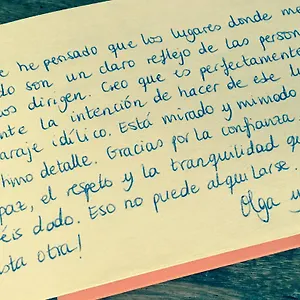 e he pensado que los lugares donde me
do son un claro reflejo de las person
os dirigen. Creo que es perfectamente
nte la intención de hacer de este l
araje idílico. Está mirado y mimado
timo detalle. Gracias por la confianza
paz, el respeto y la tranquilidad qu
éis dado. Eso no puede alquilarse.
sta otra! Olga y